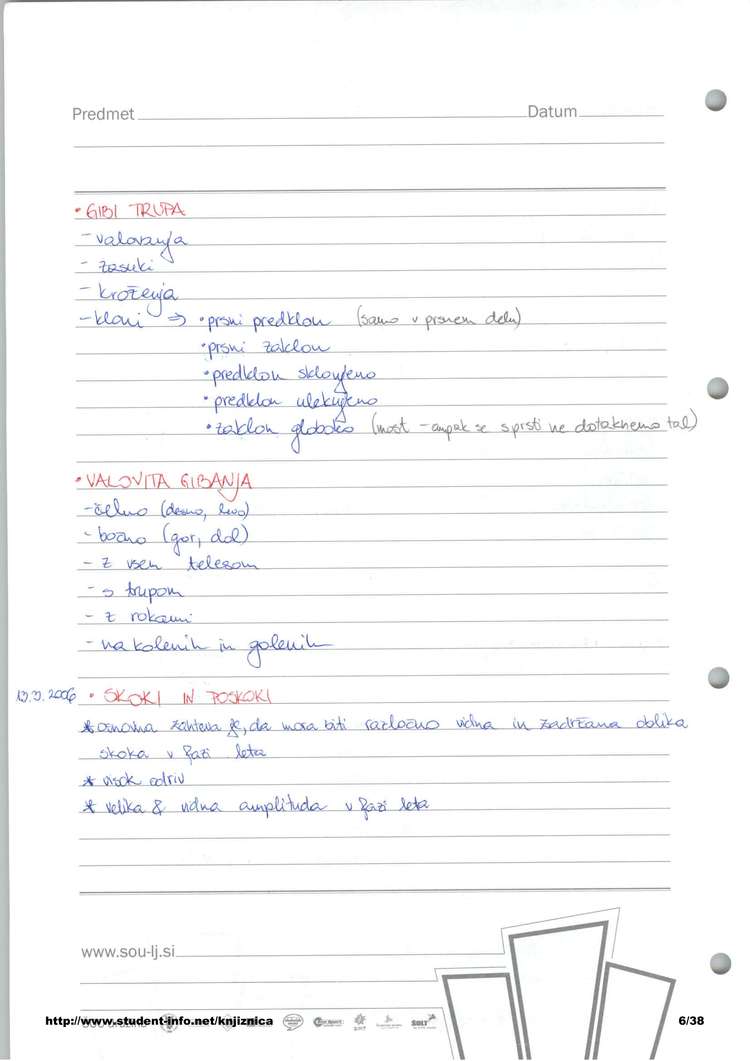 Predmet Datum
• GIBI TRUPA
- valovanja
- zasuki
- kroženja
- kloni ⇒ • prsni predklon (samo v prsnem delu)
• prsni zaklon
• predklon sklonjeno
• predklon uleknjeno
• zaklon globoko (most - ampak se s prsti ne dotaknemo tal)
• VALOVITA GIBANJA
- čelno (desno, levo)
- bočno (gor, dol)
- z vsem telesom
- s trupom
- z rokami
- na kolenih in golenih
2006 • SKOKI IN POSKOKI
* osnovna zahteva je, da mora biti razločno vidna in zadržana oblika
skoka v fazi leta
* visok odriv
* velika & vidna amplituda v fazi leta
www.sou-lj.si
http://www.student-info.net/knjiznica 6/38